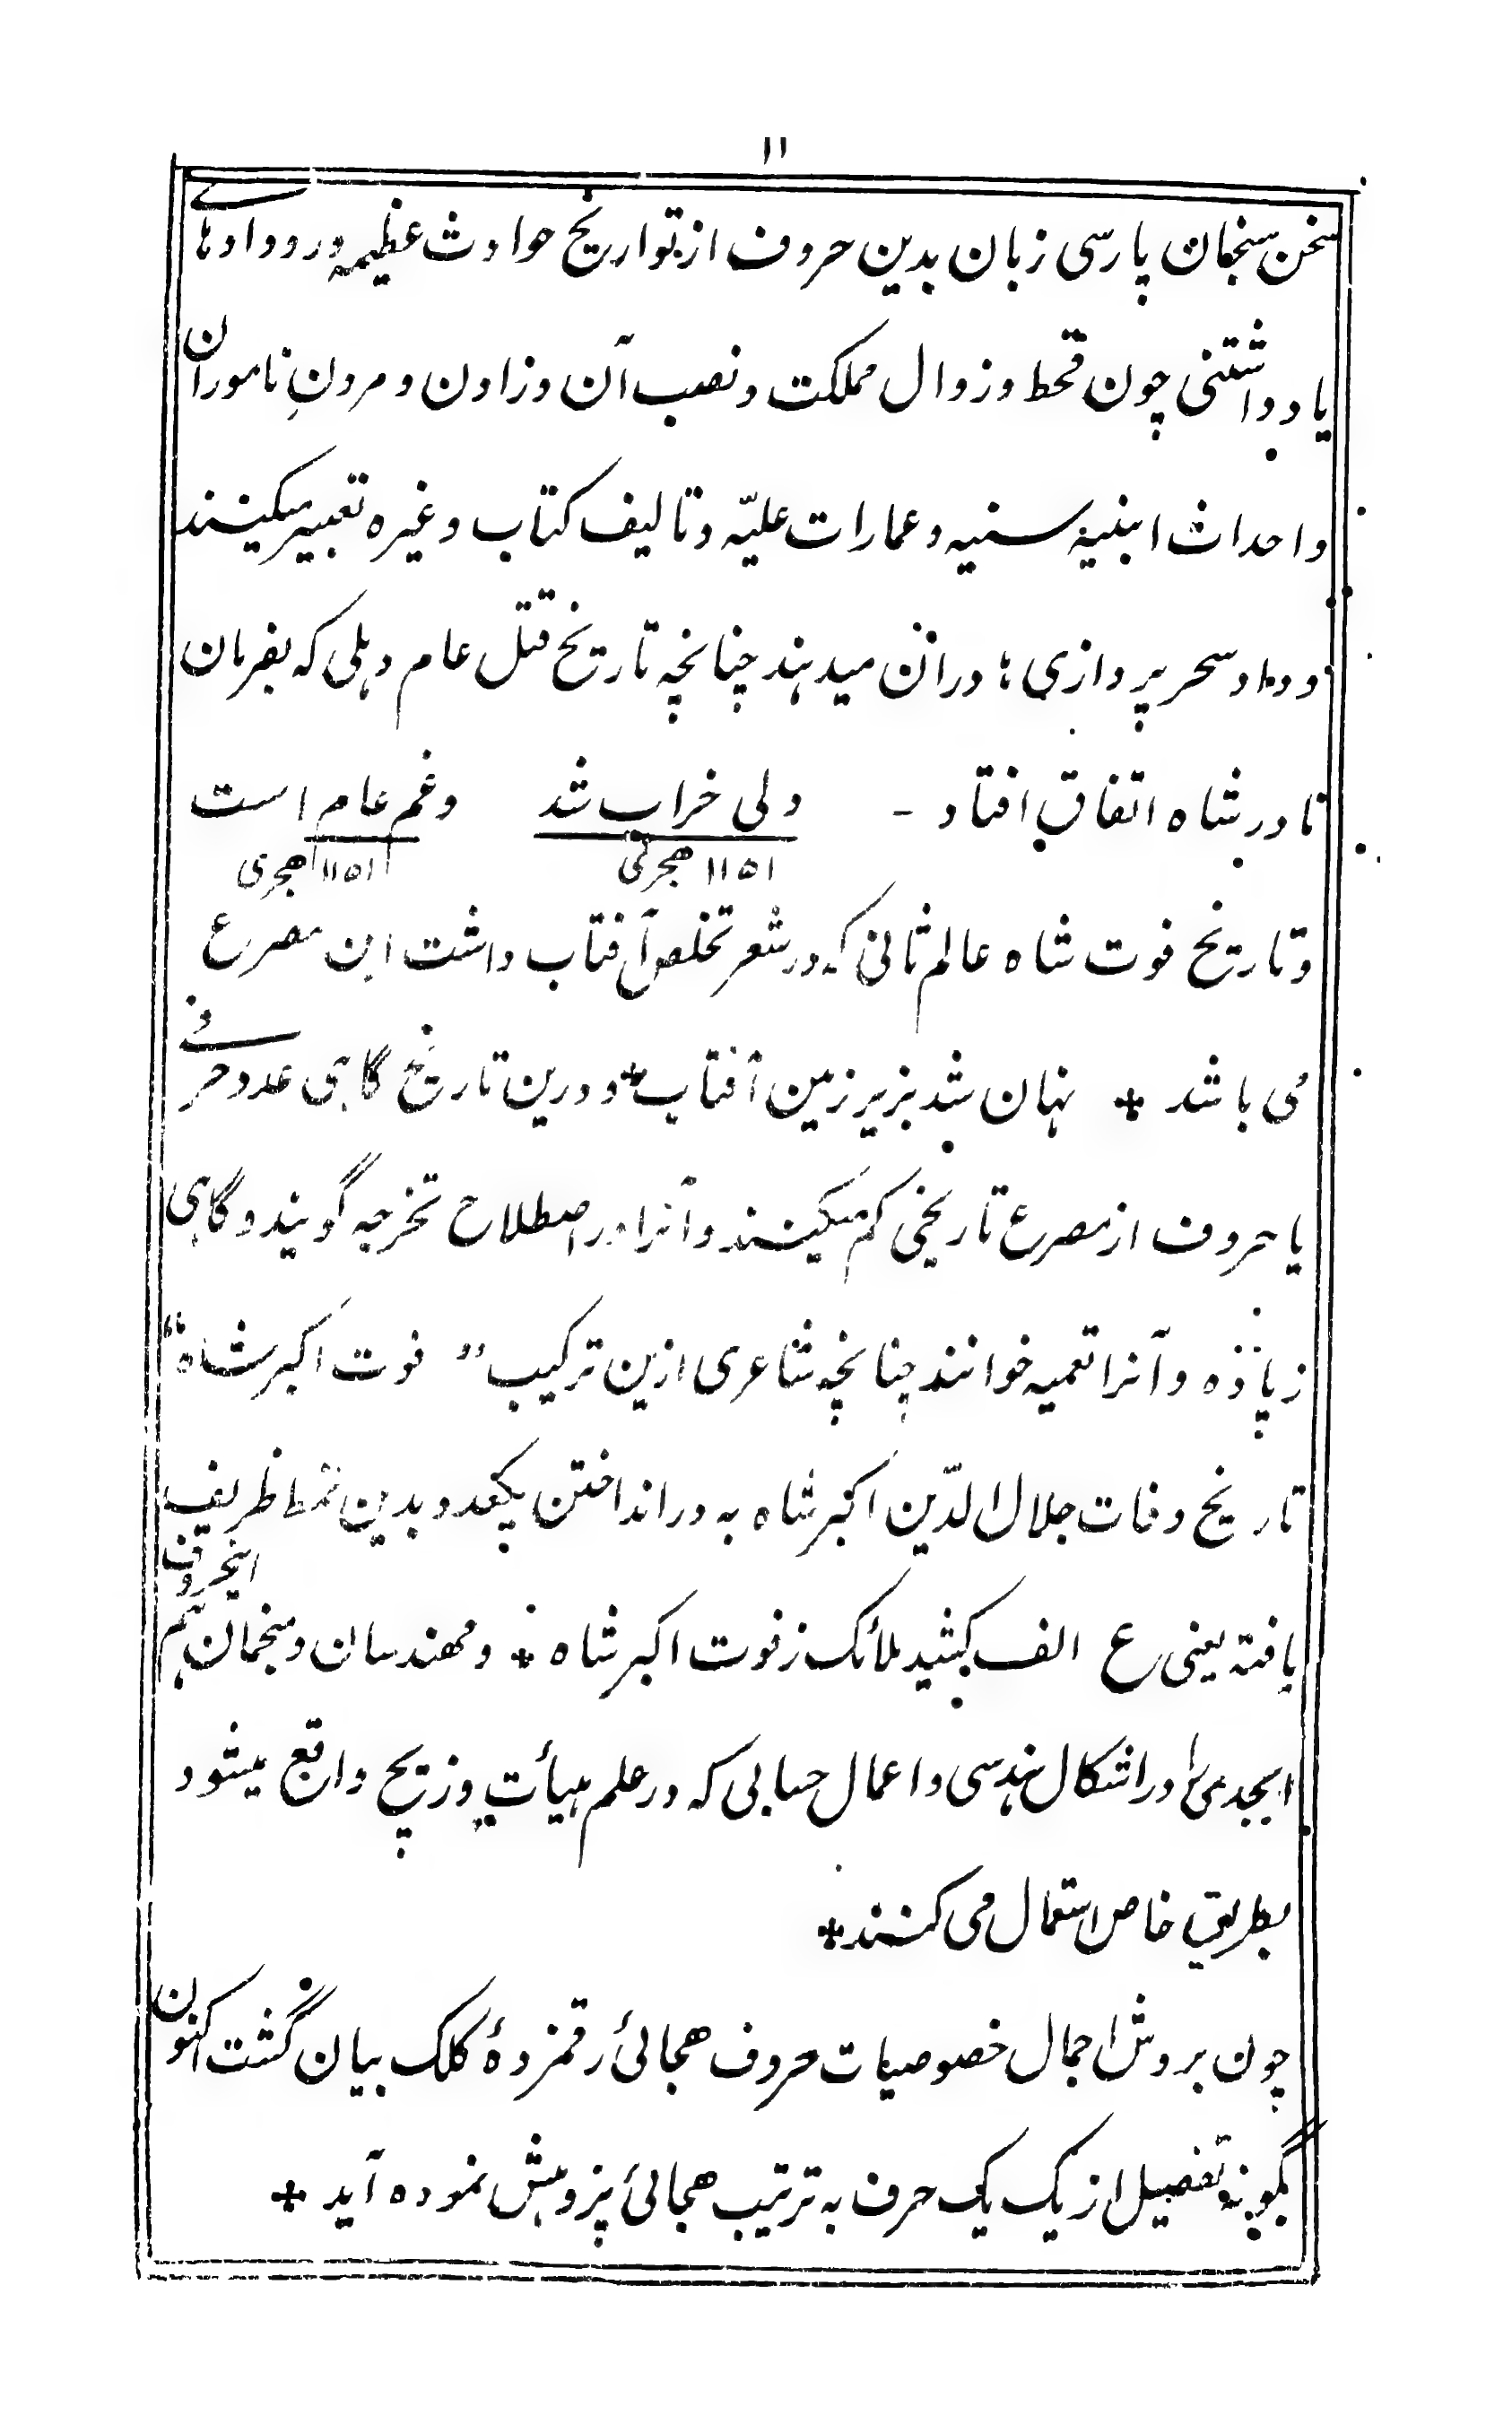 ۱۱
سخن سنجان پارسی زبان بدین حروف از تواریخ حوادث عظیمه و رودادهاے
یادداشتنی چون قحط و زوال مملکت و نصب آن و زادن و مردنِ ناموران
و احداث ابنیۂ سنیه و عمارات علیّه و تالیف کتاب و غیره تعبیر میکنند
و داد سحر پردازی ها دران میدهند چنانچه تاریخ قتل عام دهلی که بفرمان
نادر شاه اتفاق افتاد - دلی خراب شد و غم عام است
۱۱۵۱ هجری ۱۱۵۱ هجری
و تاریخ فوت شاه عالم ثانی که در شعر تخلص آفتاب داشت این مصرع
می باشد * نهان شد بزیر زمین آفتاب * و درین تاریخ گاهی عدد حرفے
یا حروف از مصرع تاریخی کم میکنند و آنرا در اصطلاح تخرجه گویند و گاهی
زیاده و آنرا تعمیه خوانند چنانچه شاعری ازین ترکیب " فوت اکبر شاه "
تاریخ وفات جلال الدّین اکبر شاه به در انداختن یکعدد بدین نمط ظریف
یافته یعنی ع الف کشید ملائک ز فوت اکبر شاه * و مهندسان و منجمان هم اینحروف
ابجدی را در اشکال هندسی و اعمال حسابی که در علم هیأت و زیج واقع میشود
بطریق خاص استعمال می کنند *
چون بروش اجمال خصوصیات حروف هجائی رقمزدۀ کلک بیان گشت اکنون
بگونۀ تفصیل از یک یک حرف به ترتیب هجائی پژوهش نموده آید *